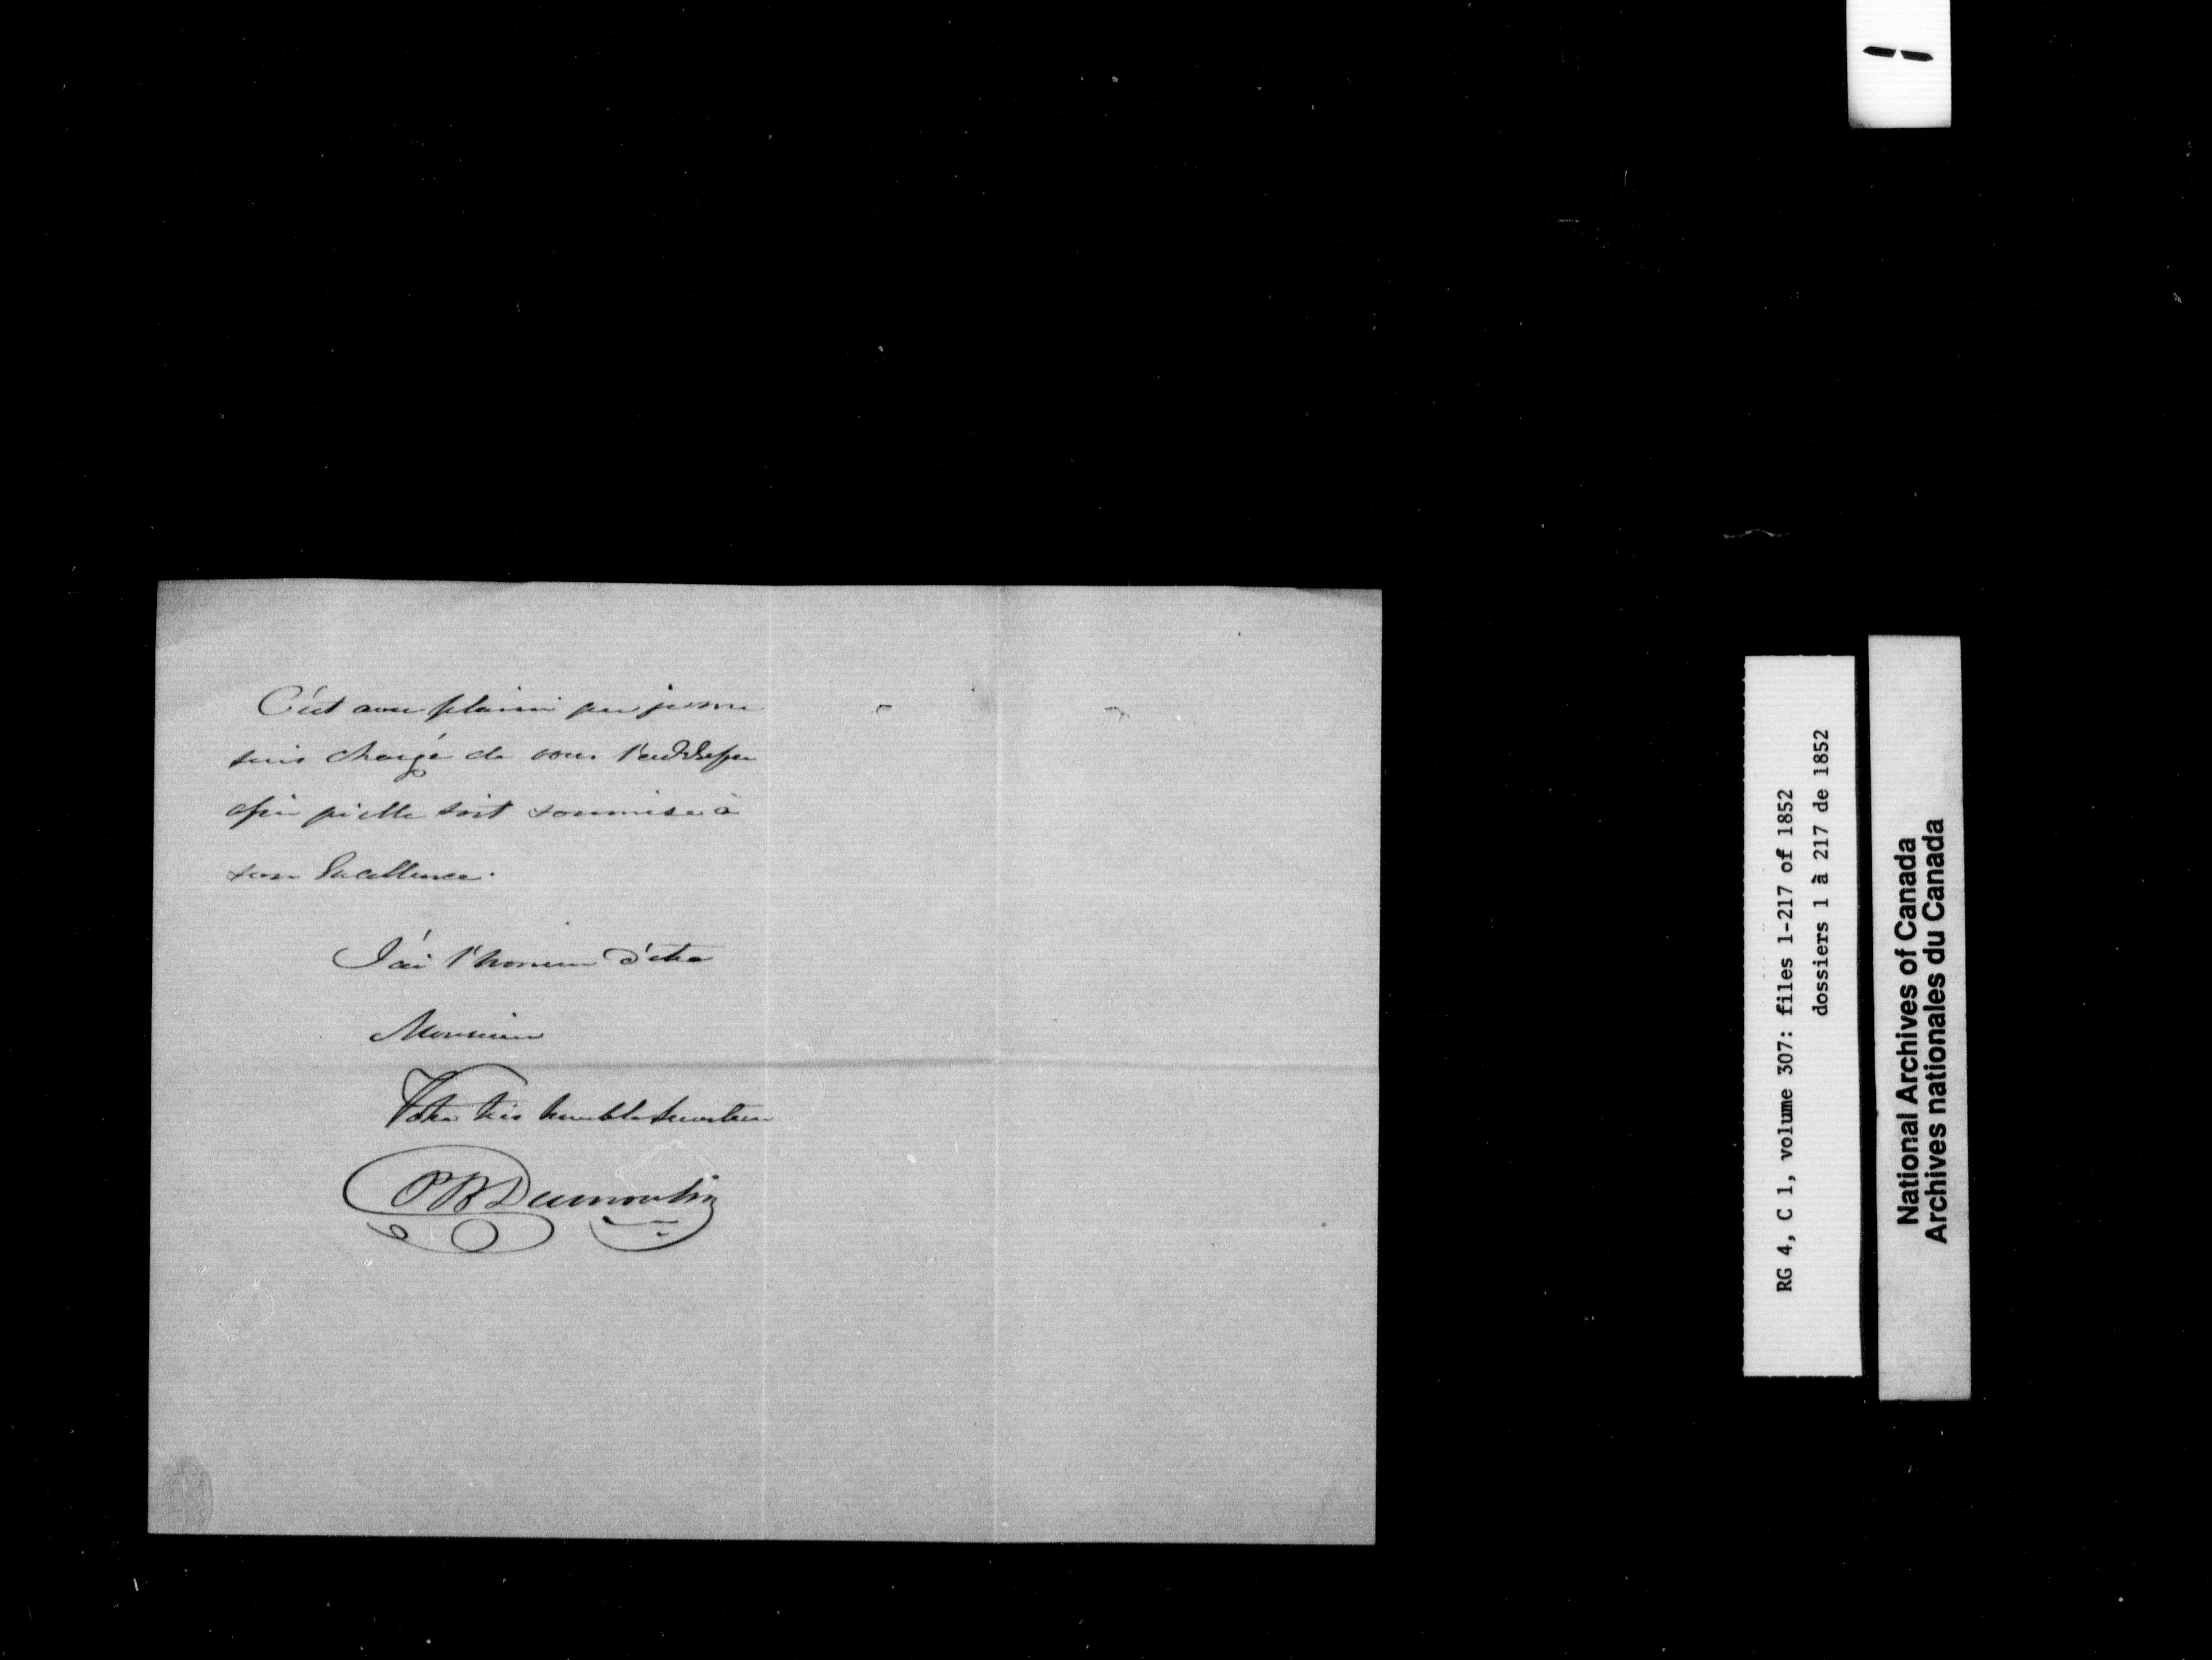 C'est avec plaisir que je me
suis chargé de vous l'addresser
afin qu'elle soit soumise à
son Excellence.
J'ai l'honneur d'être
Monsieur
Votre très humble serviteur
P B Dumoulin
11
RG 4, C 1, volume 307: files 1-217 of 1852
dossiers 1 à 217 de 1852
National Archives of Canada
Archives nationales du Canada